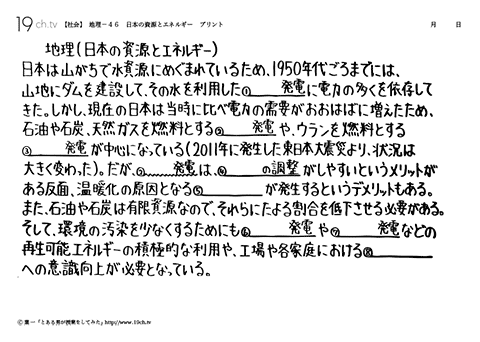 19ch.tv 【社会】 地理－46 日本の資源とエネルギー プリント 月 日
地理(日本の資源とエネルギー)
日本は山がちで水資源にめぐまれているため、1950年代ごろまでには、
山地にダムを建設して、その水を利用した① 発電に電力の多くを依存して
きた。しかし、現在の日本は当時に比べ電力の需要がおおはばに増えたため、
石油や石炭、天然ガスを燃料とする② 発電や、ウランを燃料とする
③ 発電が中心になっている(2011年に発生した東日本大震災より、状況は
大きく変わった)。だが、② 発電は、④ の調整がしやすいというメリットが
ある反面、温暖化の原因となる⑤ が発生するというデメリットもある。
また、石油や石炭は有限資源なので、それらにたよる割合を低下させる必要がある。
そして、環境の汚染を少なくするためにも⑥ 発電や⑦ 発電などの
再生可能エネルギーの積極的な利用や、工場や各家庭における⑧
への意識向上が必要となっている。
© 葉一「とある男が授業をしてみた」http://www.19ch.tv